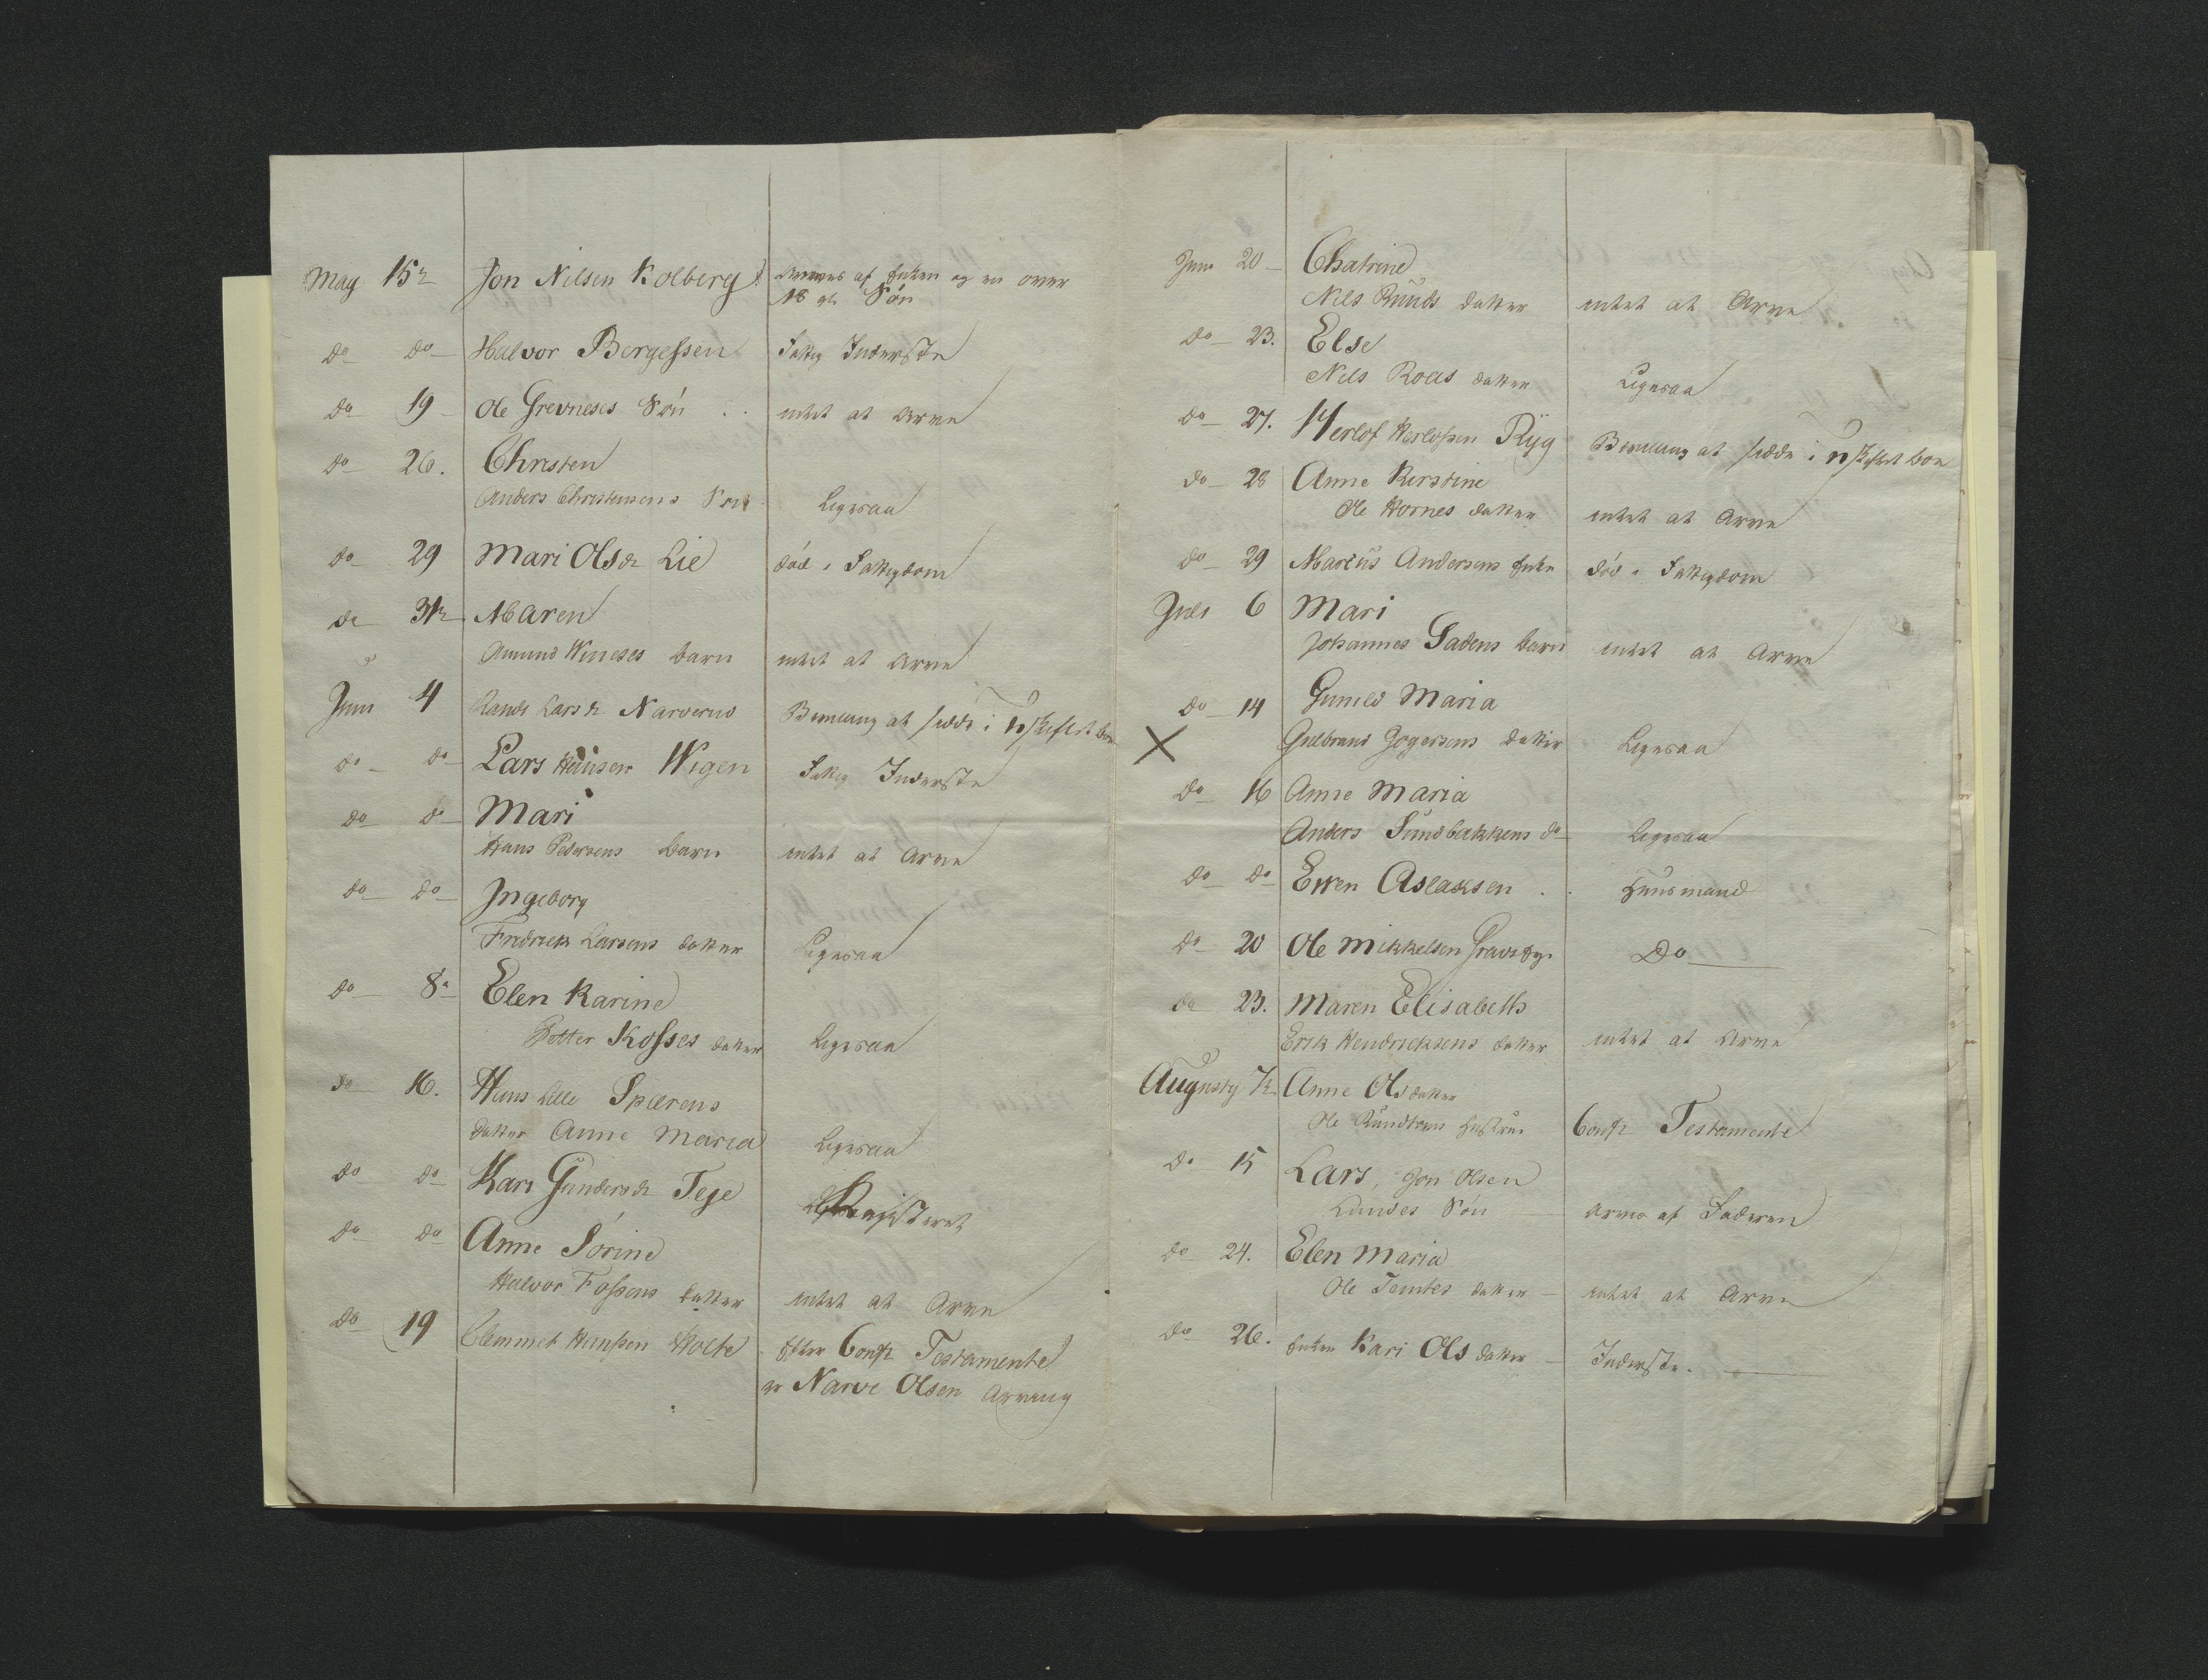 May 15de Jon Nilsen Kolberg Arves af Enken og en over
18 aar Søn
do do Halvor Børgeßen Fattig Inderste
do 19 Ole Grevneses Søn intet at Arve
do 26. Christen
Anders Christensens Søn Ligesaa
do 29 Mari Olsd: Lie død i Fattigdom
do 31te Maren
Amund Wineses barn intet at Arve
Juni 4 Randi Larsd: Narverud Bevilling at sidde i uskiftet boe
do do Lars Hansen Wigen Fattig Inderste
do do Mari
Hans Pedersens barn intet at Arve
do do Ingeborg
Fredrich Larsens datter Ligesaa
do 8de Elen Karine
Petter Koßes datter Ligesaa
do 16. Hans Lille Sparens
datter Anne Maria Ligesaa
do do Kari Gundersd: Teje Registeret
do do Anne Sørine
Halvor Foßens datter intet at Arve
do 19 Clemmet Hanßen Holte Efter Conf: Testamente
er Narve Olsen Arving
Juni 20 Chatrine
Nils Ruuds datter intet at Arve
do 23. Else
Nils Roaes datter Ligesaa
do 27. Herlof Herlofsen Ryg Bevilling at sidde i uskiftet boe
do 28 Anne Kirstine
Ole Hornes datter intet at Arve
do 29 Marcus Andersens Enke død i Fattigdom
Juli 6 Mari
Johannes Ladens barn intet at Arve
do 14 Gunild Maria
Gulbrand Jogersens datter Ligesaa
do 16 Anne Maria
Anders Sundbakkens do Ligesaa
do do Even Aslaksen Huusmand
do 20 Ole Mikkelsen Do
do 23. Maren Elisabeth
Erik Hendricksens datter intet at Arve
Augusty Anne Olsdatter
Ole Hustrue Conf: Testamente
do 15 Lars, Jon Olsen
Lundes Søn Arves af Faderen
do 24. Elen Maria
Ole Temtes datter intet at Arve
do 26. Enken Kari Olsdatter Inderste.